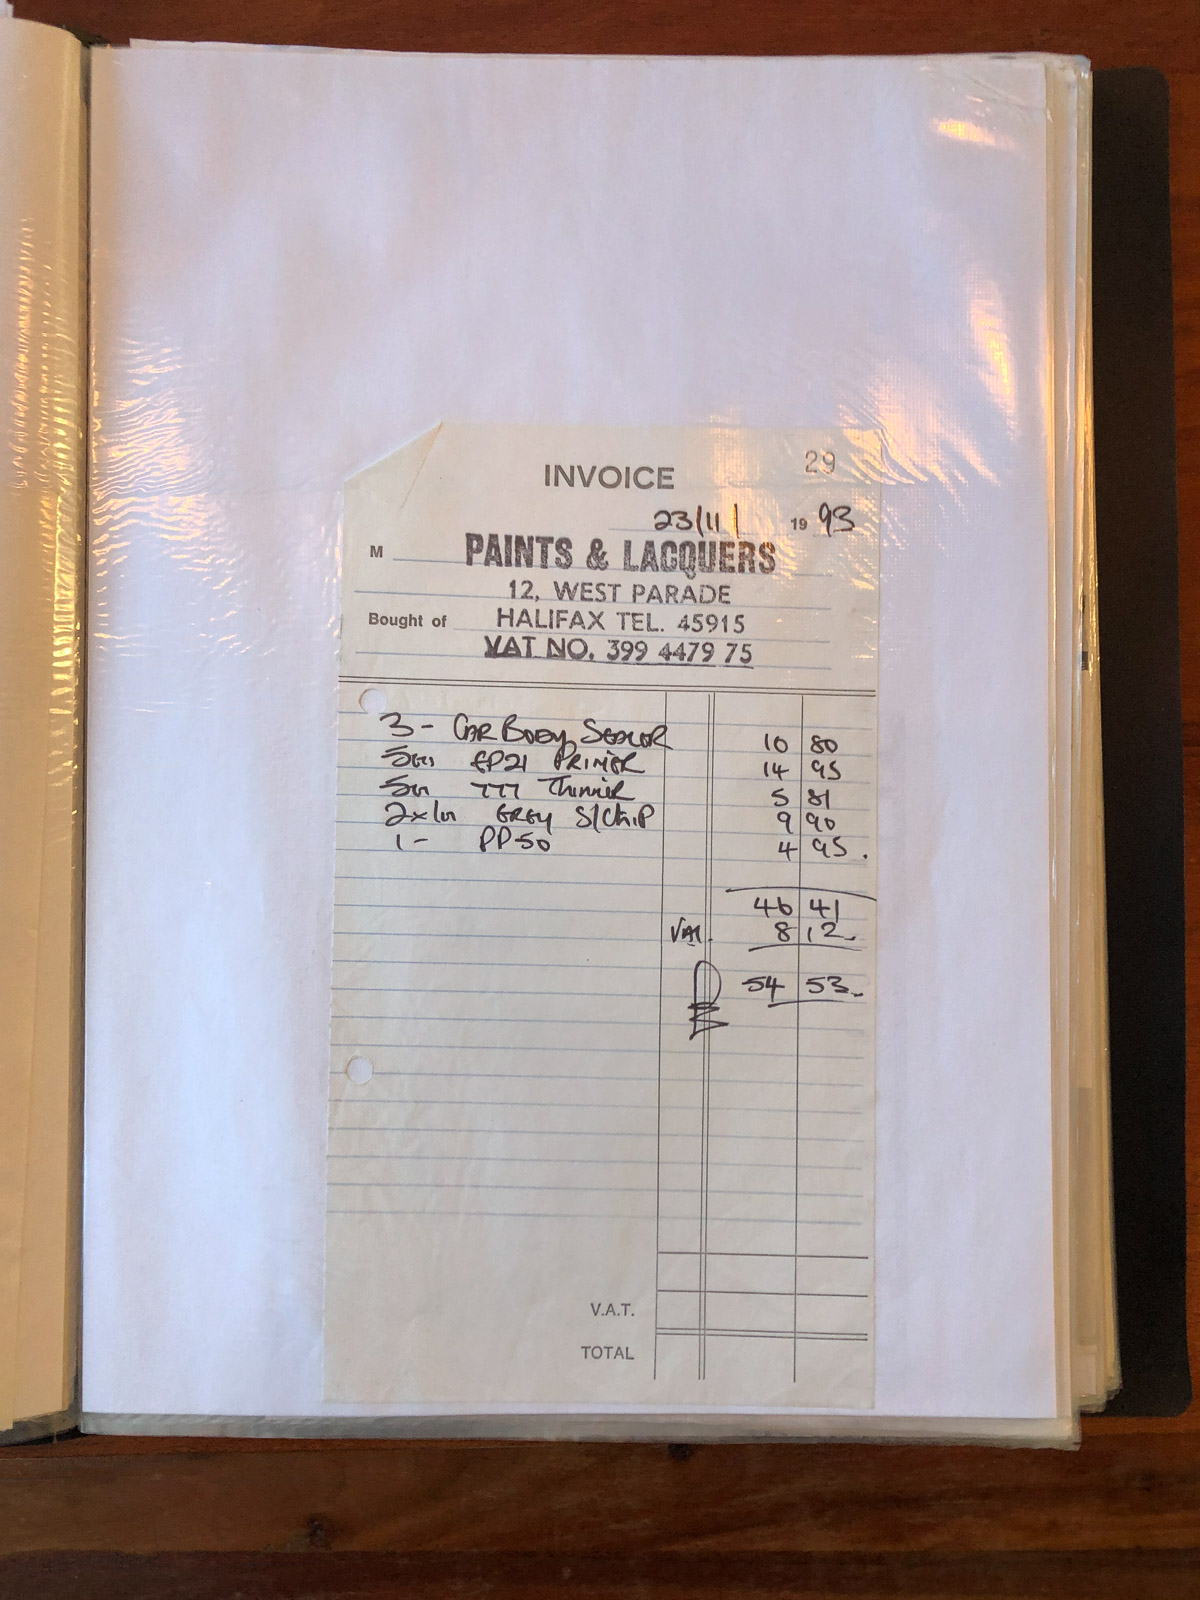 INVOICE 29
23/11/ 19 93
M PAINTS & LACQUERS
12, WEST PARADE
Bought of HALIFAX TEL. 45915
VAT NO. 399 4479 75
3 - CAR BODY SEALER 10 80
EP21 PRIMER 14 95
777 Thinner 5 81
GREY S/CHIP 9 90
1 - PP50 4 95.
46 41
VAT. 8 12
54 53
V.A.T.
TOTAL